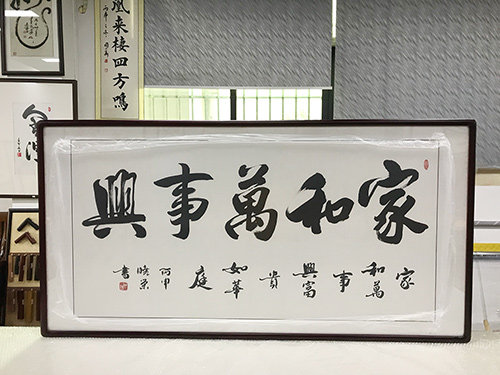 家和萬事興
家和萬事興富貴如華庭
書
凰来棲四方鳴